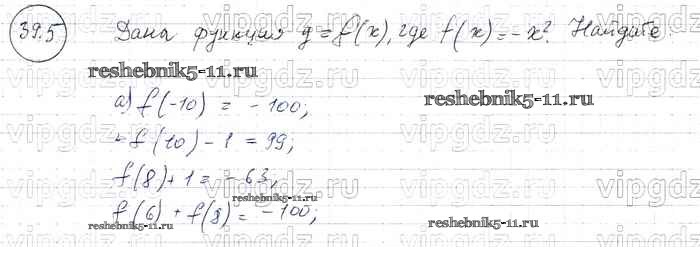 39.5 Дана функция y = f(x), где f(x) = -x². Найдите:
vipgdz.ru vipgdz.ru vipgdz.ru vipgdz.ru
reshebnik5-11.ru
а) f(-10) = -100;
reshebnik5-11.ru
vipgdz.ru vipgdz.ru vipgdz.ru vipgdz.ru
-f(10) - 1 = 99;
f(8) + 1 = -63,
vipgdz.ru vipgdz.ru vipgdz.ru vipgdz.ru
f(6) + f(8) = -100;
reshebnik5-11.ru reshebnik5-11.ru
vipgdz.ru vipgdz.ru vipgdz.ru vipgdz.ru